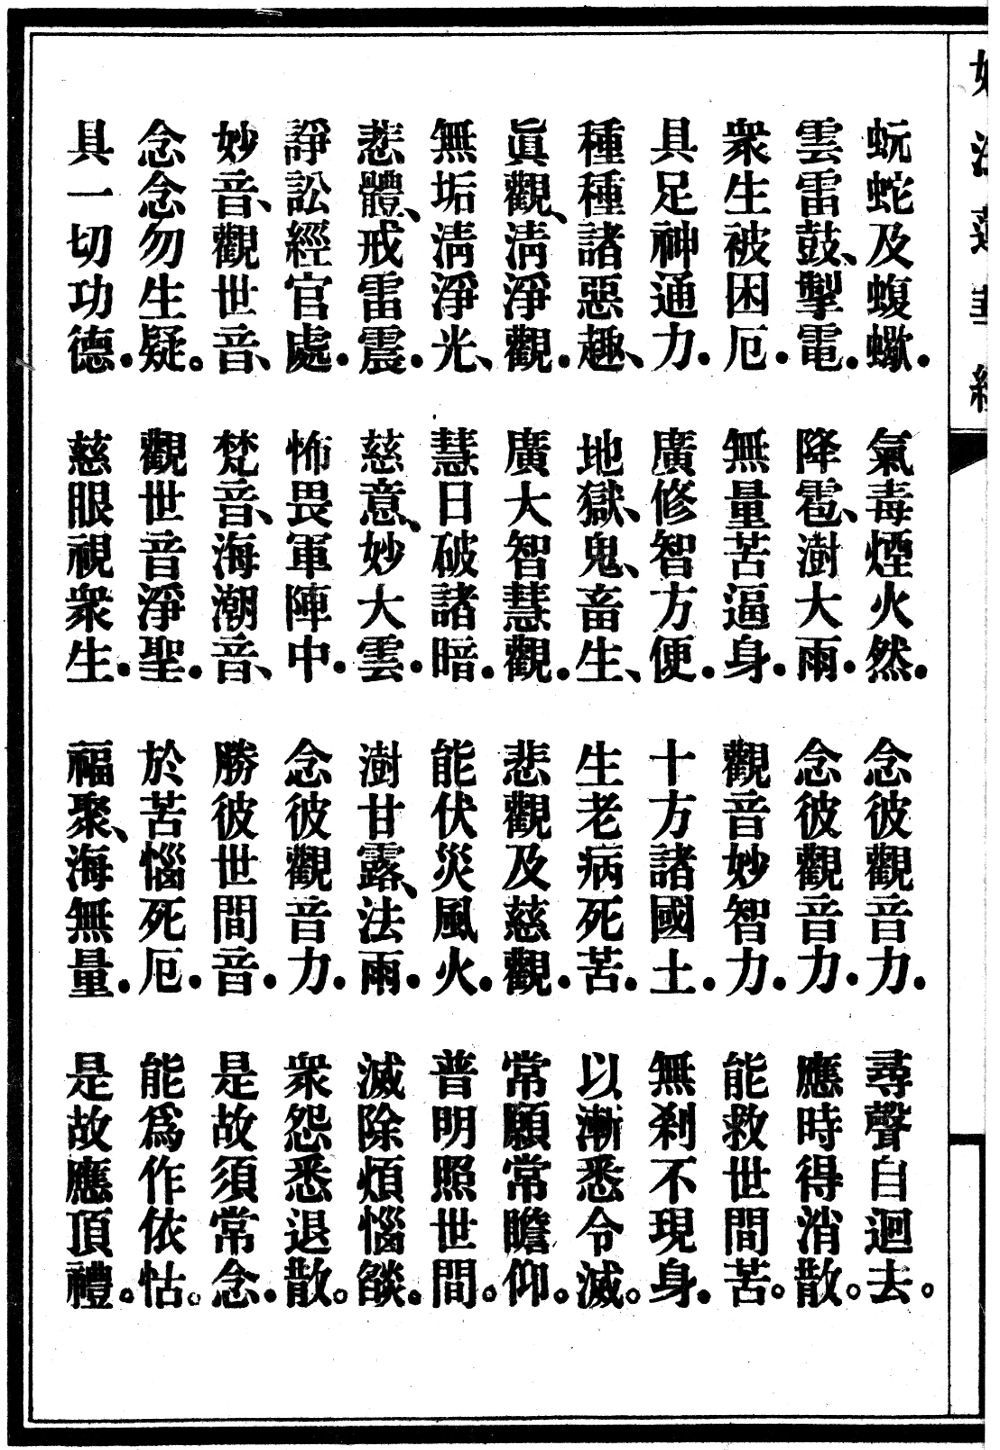 妙法蓮華經
蚖蛇及蝮蠍．氣毒煙火然．念彼觀音力．尋聲自迴去。
雲雷鼓、掣電．降雹、澍大雨．念彼觀音力．應時得消散。
衆生被困厄．無量苦逼身．觀音妙智力．能救世間苦。
具足神通力．廣修智方便．十方諸國土．無刹不現身．
種種諸惡趣、地獄、鬼、畜生、生老病死苦．以漸悉令滅。
眞觀、淸淨觀．廣大智慧觀．悲觀及慈觀．常願常瞻仰．
無垢淸淨光、慧日破諸暗．能伏災風火．普明照世間。
悲體、戒雷震．慈意、妙大雲．澍甘露、法雨．滅除煩惱燄．
諍訟經官處．怖畏軍陣中．念彼觀音力．衆怨悉退散。
妙音、觀世音、梵音、海潮音、勝彼世間音．是故須常念．
念念勿生疑。觀世音淨聖．於苦惱死厄．能爲作依怙。
具一切功德．慈眼視衆生．福聚、海無量．是故應頂禮。